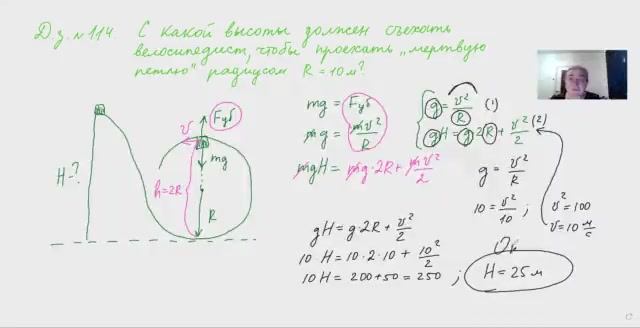 Д.з. №114. С какой высоты должен съехать
велосипедист, чтобы проехать „мертвую
петлю" радиусом R = 10 м?
H-?
v
Fцб
mg
h=2R
R
mg = Fцб
mg = mv²/R
mgH = mg·2R + mv²/2
g = v²/R (1)
gH = g·2R + v²/2 (2)
g = v²/R
10 = v²/10 ; v² = 100
v = 10 м/с
gH = g·2R + v²/2
10 H = 10·2·10 + 10²/2
10H = 200+50 = 250 ; H = 25 м